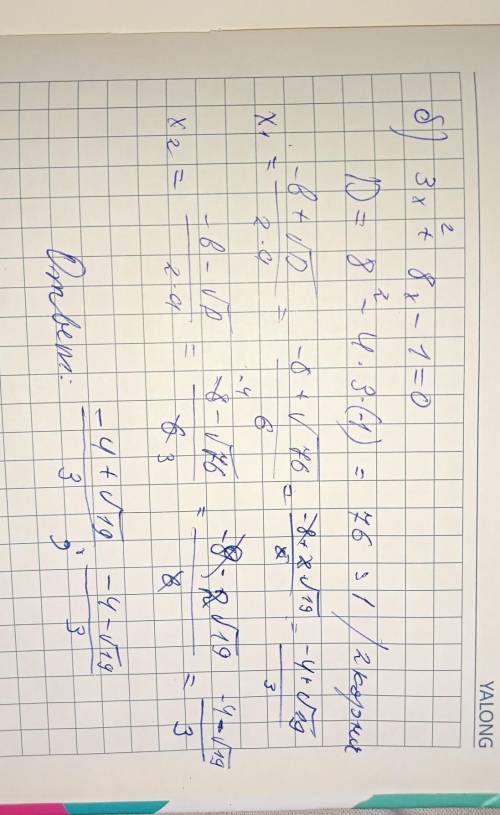 YALONG
б) 3x² + 8x - 1 = 0
D = 8² - 4 · 3 · (-1) = 76 > 1 / 2 корня
x₁ = (-b + √D)/(2·a) = (-8 + √76)/6 = (-8 + 2√19)/6 = (-4 + √19)/3
x₂ = (-b - √D)/(2·a) = (-8 - √76)/6 = (-8 - 2√19)/6 = (-4 - √19)/3
Ответ: (-4 + √19)/3 ; (-4 - √19)/3